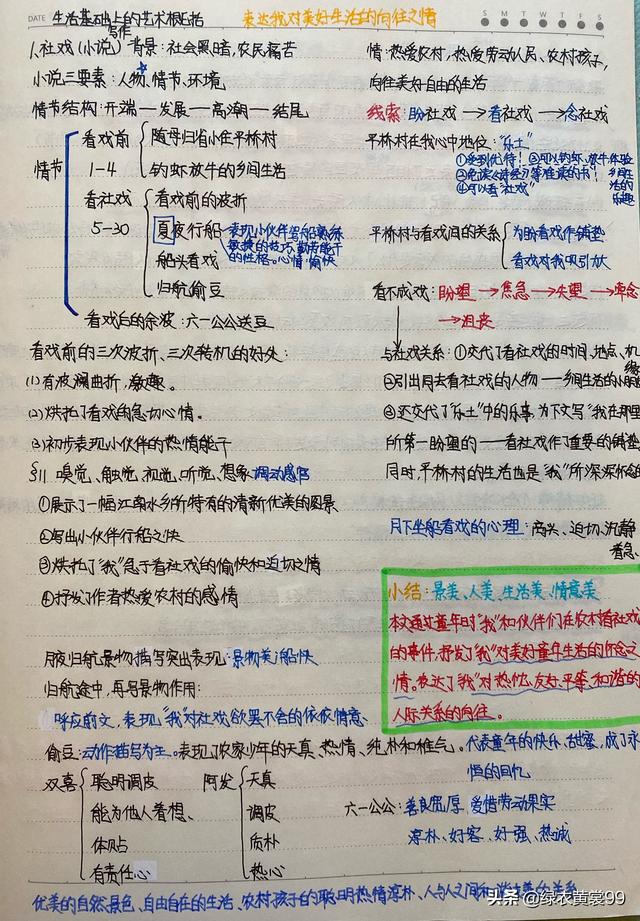 DATE
生活基础上的艺术概括
写作
表达我对美好生活的向往之情
S M T W T F S
1.社戏(小说) 背景:社会黑暗,农民痛苦
小说三要素:人物、情节、环境
情节结构:开端—发展—高潮—结尾
情节
看戏前
1-4
随母归省小住平桥村
钓虾放牛的乡间生活
看社戏
5-30
看戏前的波折
夏夜行船
表现小伙伴驾船熟练
敏捷的技巧,勤劳能干
的性格。心情愉快
船头看戏
归航偷豆
看戏后的余波:六一公公送豆
看戏前的三次波折、三次转机的好处:
(1)有波澜曲折,激趣。
(2)烘托了看戏的急切心情。
(3)初步表现小伙伴的热情能干
§11 嗅觉、触觉、视觉、听觉、想象 调动感官
①展示了一幅江南水乡所特有的清新优美的图景
②写出小伙伴行船之快
③烘托了"我"急于看社戏的愉快和迫切之情
④抒发了作者热爱农村的感情
月夜归航景物描写突出表现:景物美,船快
归航途中,再写景物作用:
呼应前文,表现"我"对社戏欲罢不舍的依依情意
偷豆:动作描写为主。表现了农家少年的天真、热情、纯朴和稚气。代表童年的快乐、甜蜜,成了永
恒的回忆
双喜
聪明调皮
能为他人着想、
体贴
有责任心
阿发
天真
调皮
质朴
热心
六一公公:善良宽厚、爱惜劳动果实
淳朴、好客、好强、热诚
优美的自然景色、自由自在的生活、农村孩子的聪明热情淳朴、人与人之间和谐真美的关系
情:热爱农村,热爱劳动人民、农村孩子,
向往美好自由的生活
线索:盼社戏→看社戏→念社戏
平桥村在我心中地位:"乐土"
①受到优待!②可以钓虾、放牛体验
乡间生活的乐趣
③免读《诗经》等难读的书!
④可以看"社戏"
平桥村与看戏间的关系
为盼看戏作铺垫
看戏对我吸引大
看不成戏:盼望→焦急→失望→牵念
→沮丧
与社戏关系:①交代了看社戏的时间、地点、机缘
②引出同去看社戏的人物——乡间生活的小朋
③还交代了"乐土"中的乐事,为下文写"我在那里
所第一盼望的——看社戏作了重要的铺垫
同时,平桥村的生活也是"我"所深深怀念
月下坐船看戏的心理:高兴、迫切、沉静
着急、
小结:景美、人美、生活美、情意美
本文通过童年时"我"和伙伴们在农村看社戏
的事件,抒发了"我"对美好童年生活的怀念之
情。表达了"我"对热忱、友好、平等、和谐的
人际关系的向往。
头条@绿衣黄裳99